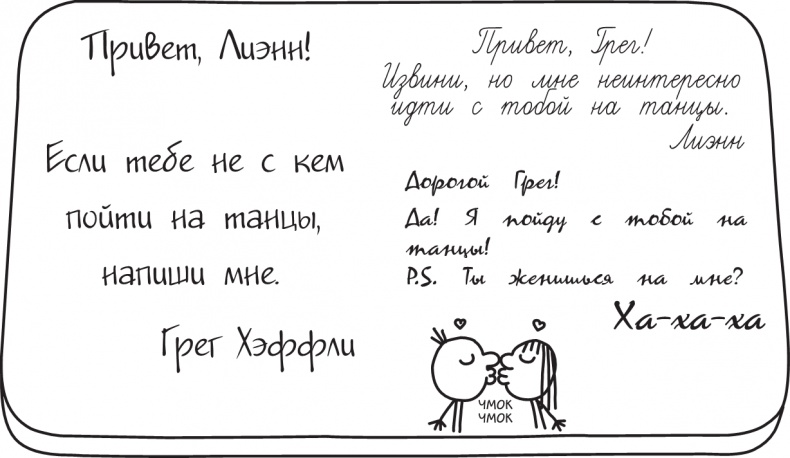 Привет, Лиэнн!
Если тебе не с кем
пойти на танцы,
напиши мне.
Грег Хэффли
Привет, Грег!
Извини, но мне неинтересно
идти с тобой на танцы.
Лиэнн
Дорогой Грег!
Да! Я пойду с тобой на
танцы!
P.S. Ты женишься на мне?
Ха-ха-ха
ЧМОК
ЧМОК